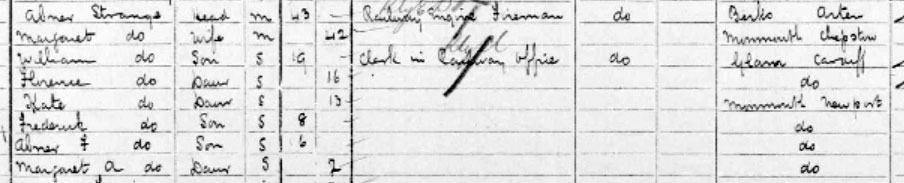 Abner Strange Head M 43 – Railway Engine Fireman do Berks
Margaret do Wife M 42 Monmouth Chepstow
William do Son S 19 – Clerk in Railway Office do Glam Cardiff
Florence do Daur S 16 do
Kate do Daur S 13 Monmouth Newport
Frederick do Son S 8 do
Abner F do Son S 6 do
Margaret A do Daur S 2 do